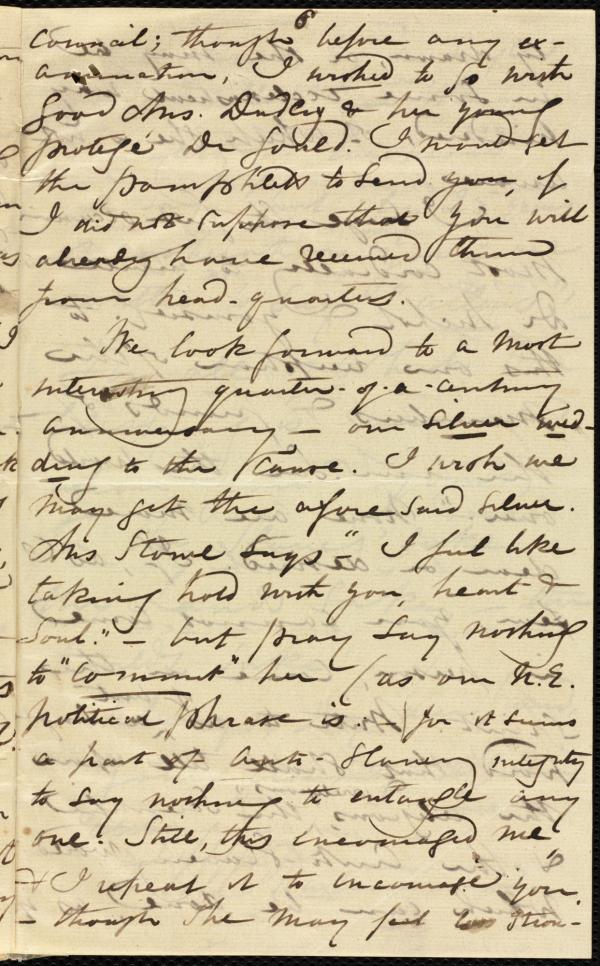 6
Council; though before any ex-
amination, I wished to go with
good Mrs. Dudley & her young
protegé Dr Gould. I would get
the pamphlets to send you, if
I did not suppose that you will
already have received them
from head-quarters.
We look forward to a most
interesting quarter-of-a-century
anniversary — our silver wed-
ding to the Cause. I wish we
may get the afore said silver.
Mrs Stowe says "I feel like
taking hold with you, heart &
soul." — but pray say nothing
to "commit" her (as our N.E.
political phrase is. —) for it seems
a part of Anti-Slavery integrity
to say nothing to entangle any
one. Still, this encouraged me,
& I repeat it to encourage you,
— though she may feel less stron-